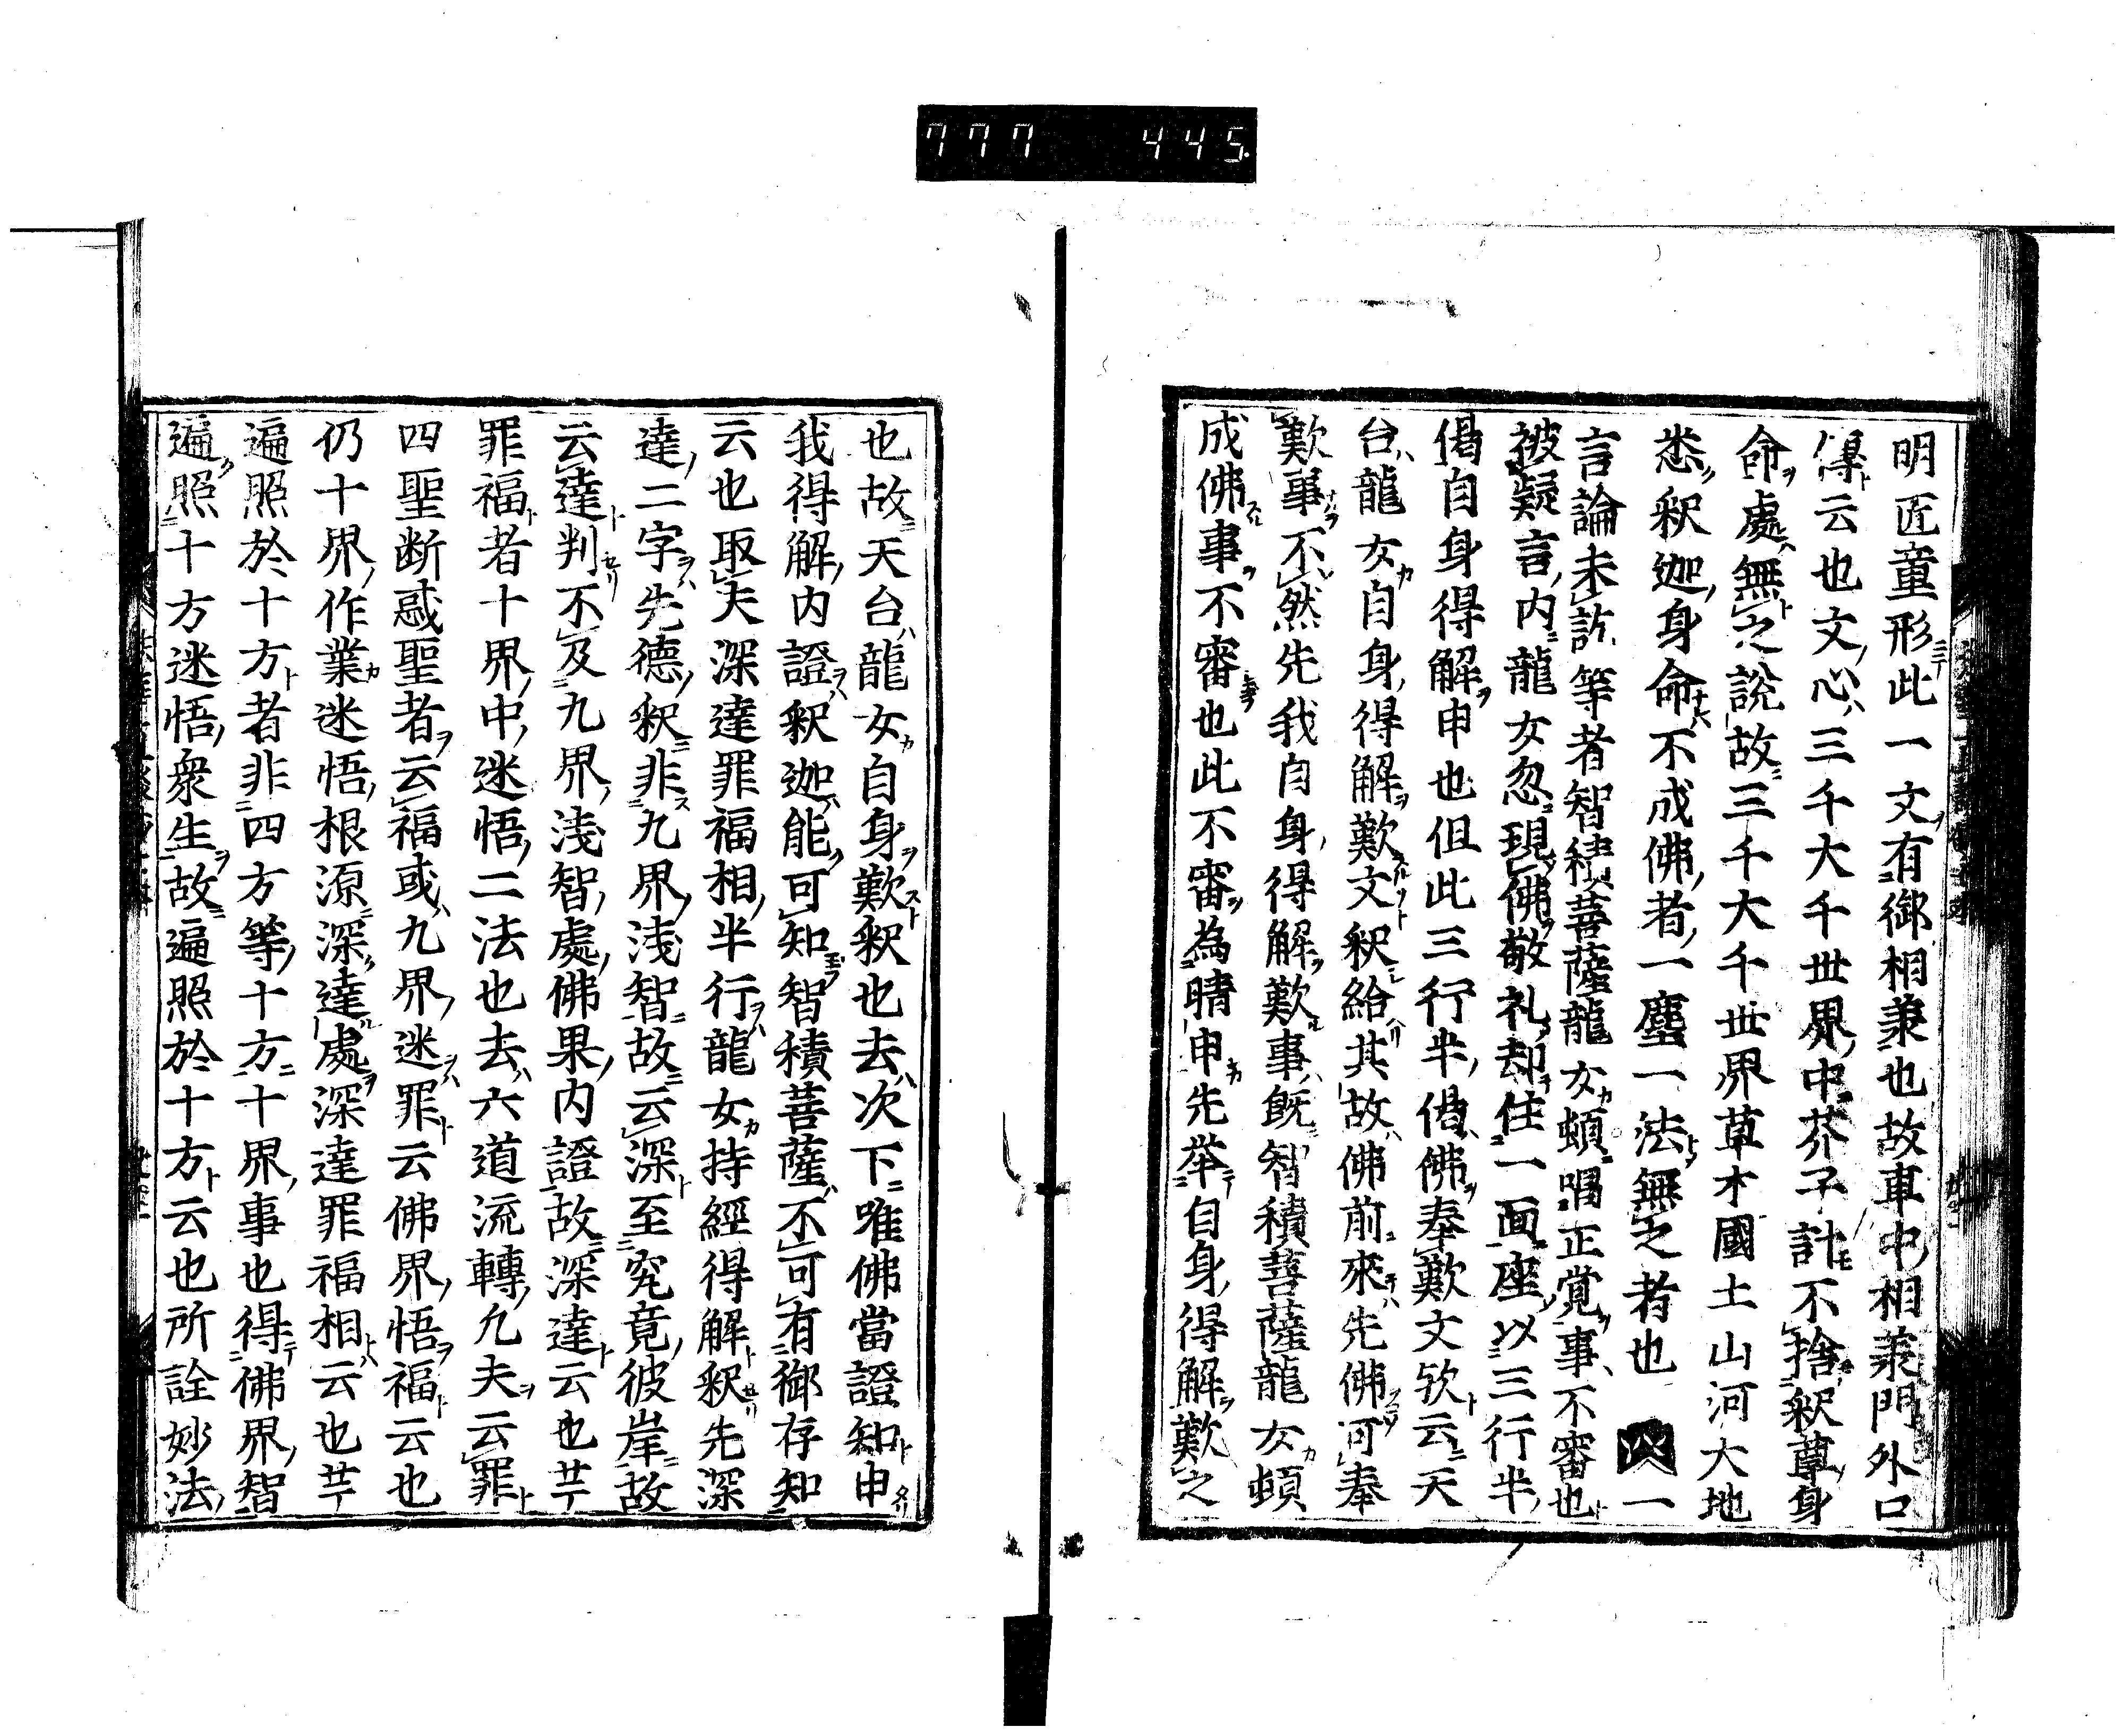 777 445
明匠童形此一文有御相兼也故車中相兼門外口
傳云也文心三千大千世界中芥子計不捨釈尊身
命處無之說故三千大千世界草木國土山河大地
悉釈迦身命不成佛者一塵一法無之者也 一
言論未訖等者智積菩薩龍女頓唱正覚事不審也
被疑言內龍女忽現佛敬礼却住一面座以三行半
偈自身得解申也但此三行半偈佛奉歎文欤云天
台龍女自身得解歎文釈給其故佛前來先佛可奉
歎事不然先我自身得解歎事既智積菩薩龍女頓
成佛事不審也此不審為晴申先举自身得解歎之
也故天台龍女自身歎釈也去次下唯佛當證知申
我得解內證釈迦能可知智積菩薩不可有御存知
云也取夫深達罪福相半行龍女持經得解釈先深
達二字先德釈非九界淺智故云深至究竟彼岸故
云達判不及九界淺智處佛果內證故深達云也廿一
罪福者十界中迷悟二法也去六道流轉凡夫云罪
四聖断惑聖者云福或九界迷罪云佛界悟福云也
仍十界作業迷悟根源深達處深達罪福相云也廿一
遍照於十方者非四方等十方十界事也得佛界智
遍照十方迷悟衆生故遍照於十方云也所詮妙法